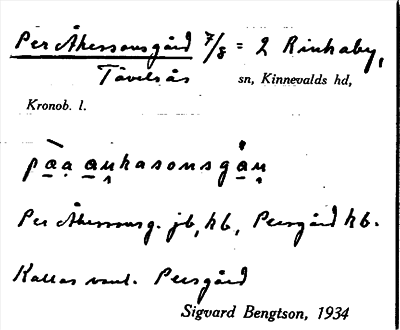 Per Åkessonsgård 7/8 = 2 Rinkaby,
Tävelsås sn, Kinnevalds hd,
Kronob. l.
pa̲ạ a̲u̯kasonsga̲ṇ
Per Åkessonsg. jb, kb, Persgård kb.
Kallas vanl. Persgård
Sigvard Bengtson, 1934